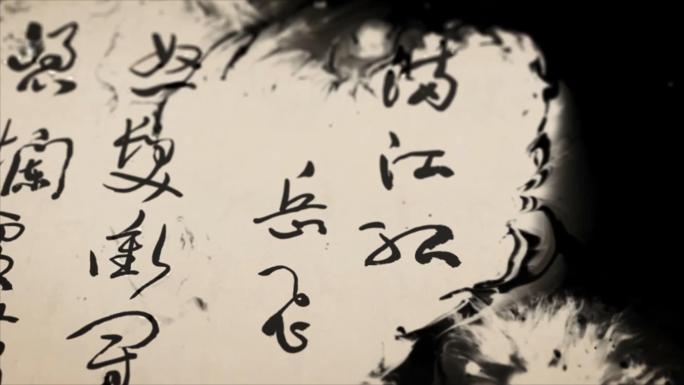 满江红
岳飞
怒发冲冠
凭阑